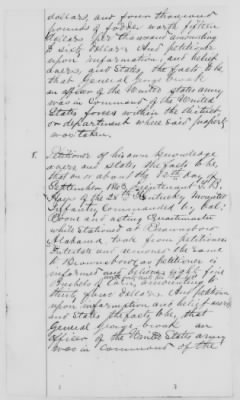 dollars, and four thousand
pounds of fodder worth fifteen
dollars per thousand amounting
to sixty dollars. And petitioner
upon information, and belief
avers, and states, the facts to be,
that General George Crook
an officer of the United States army
was in Command of the United
States forces within the district
or department where said property
was taken.
Petitioner of his own knowledge
avers and states, the facts to be,
that on or about the 12th day of
September 1863 Lieutenant T. B.
of the 28th Kentucky Mounted
Infantry Commanded by Col.
Boone and acting Quartermaster
while stationed at Brownsboro
Alabama took from petitioners
and removed the same
to Brownsboro, as petitioner is
informed and believes eight five
Bushels of Corn, amounting to
thirty four dollars. And petitioner
upon information and belief avers
and states the facts to be, that
General George Crook an
officer of the United States army
was in Command of the